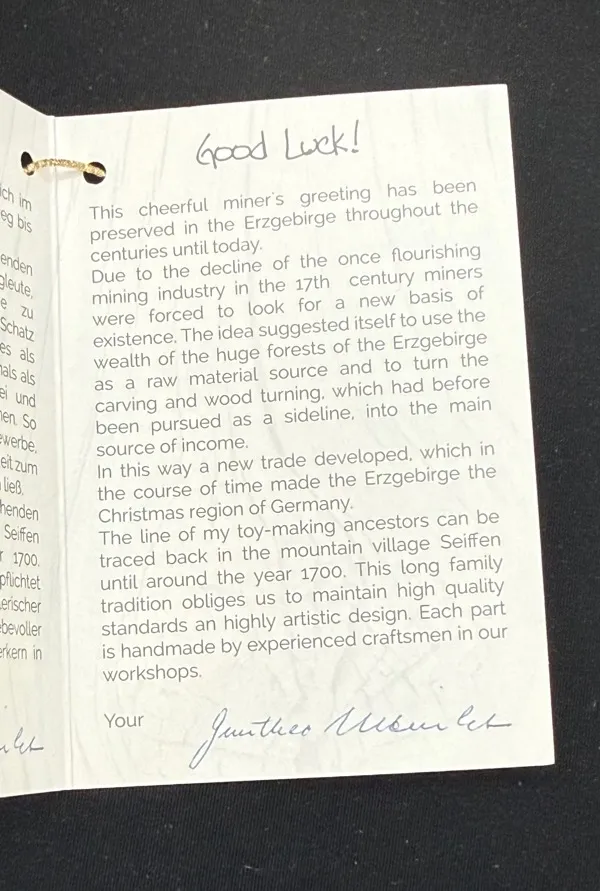 ich im
eg bis
enden
gleute,
e zu
Schatz
es als
nals als
ei und
nen. So
ewerbe,
eit zum
ließ.
henden
Seiffen
r 1700.
pflichtet
erischer
bevoller
erkern in
Good Luck!
This cheerful miner's greeting has been
preserved in the Erzgebirge throughout the
centuries until today.
Due to the decline of the once flourishing
mining industry in the 17th century miners
were forced to look for a new basis of
existence. The idea suggested itself to use the
wealth of the huge forests of the Erzgebirge
as a raw material source and to turn the
carving and wood turning, which had before
been pursued as a sideline, into the main
source of income.
In this way a new trade developed, which in
the course of time made the Erzgebirge the
Christmas region of Germany.
The line of my toy-making ancestors can be
traced back in the mountain village Seiffen
until around the year 1700. This long family
tradition obliges us to maintain high quality
standards an highly artistic design. Each part
is handmade by experienced craftsmen in our
workshops.
Your Gunther Ulbricht